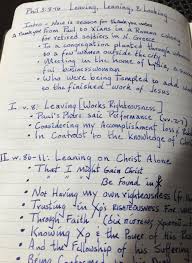 Phil 3:8-16 Leaving, Leaning, & Looking
Intro - Here is reason for
A Thank you from Paul to Xians in a Roman colony
for retired soldiers in N. Greece
• To a congregation planted through
to a few women outside the city
Meeting in the home of Lydia, a
businesswoman
• Who were being Tempted to add
to the finished work of Jesus
I. v. 8: Leaving [Works Righteousness]
• Paul's Past said Performance
• Considering my Accomplishment loss
• In Contrast to the knowledge of
II. vv. 8b-11: Leaning on Christ Alone
• That I Might Gain Christ
Be Found in
• Not Having my own righteousness
• Trusting in Xp's RIGHTEOUSNESS FOR
• Through Faith
• Knowing Xp & the Power of His
• And the Fellowship of His Suffering
• Being